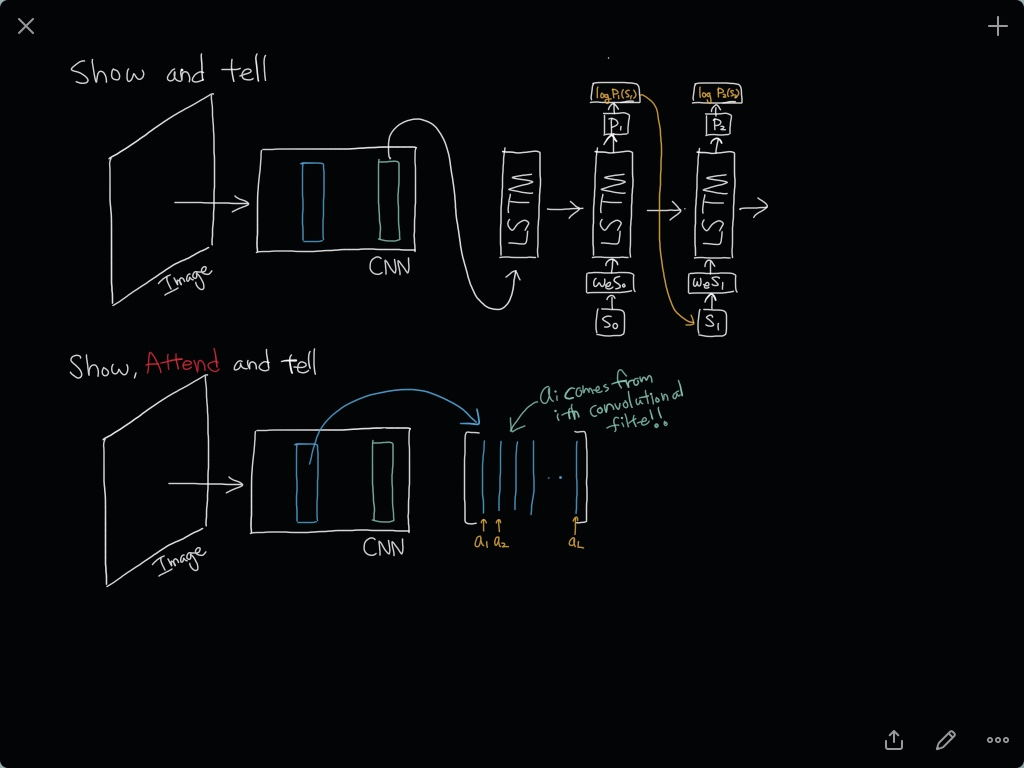 Show and tell
Image
CNN
LSTM
LSTM
LSTM
log P₁(S₁)
P₁
WeS₀
S₀
log P₂(S₂)
P₂
WeS₁
S₁
Show, Attend and tell
Image
CNN
a₁ a₂ a_L
ai comes from
i-th convolutional
filte!!